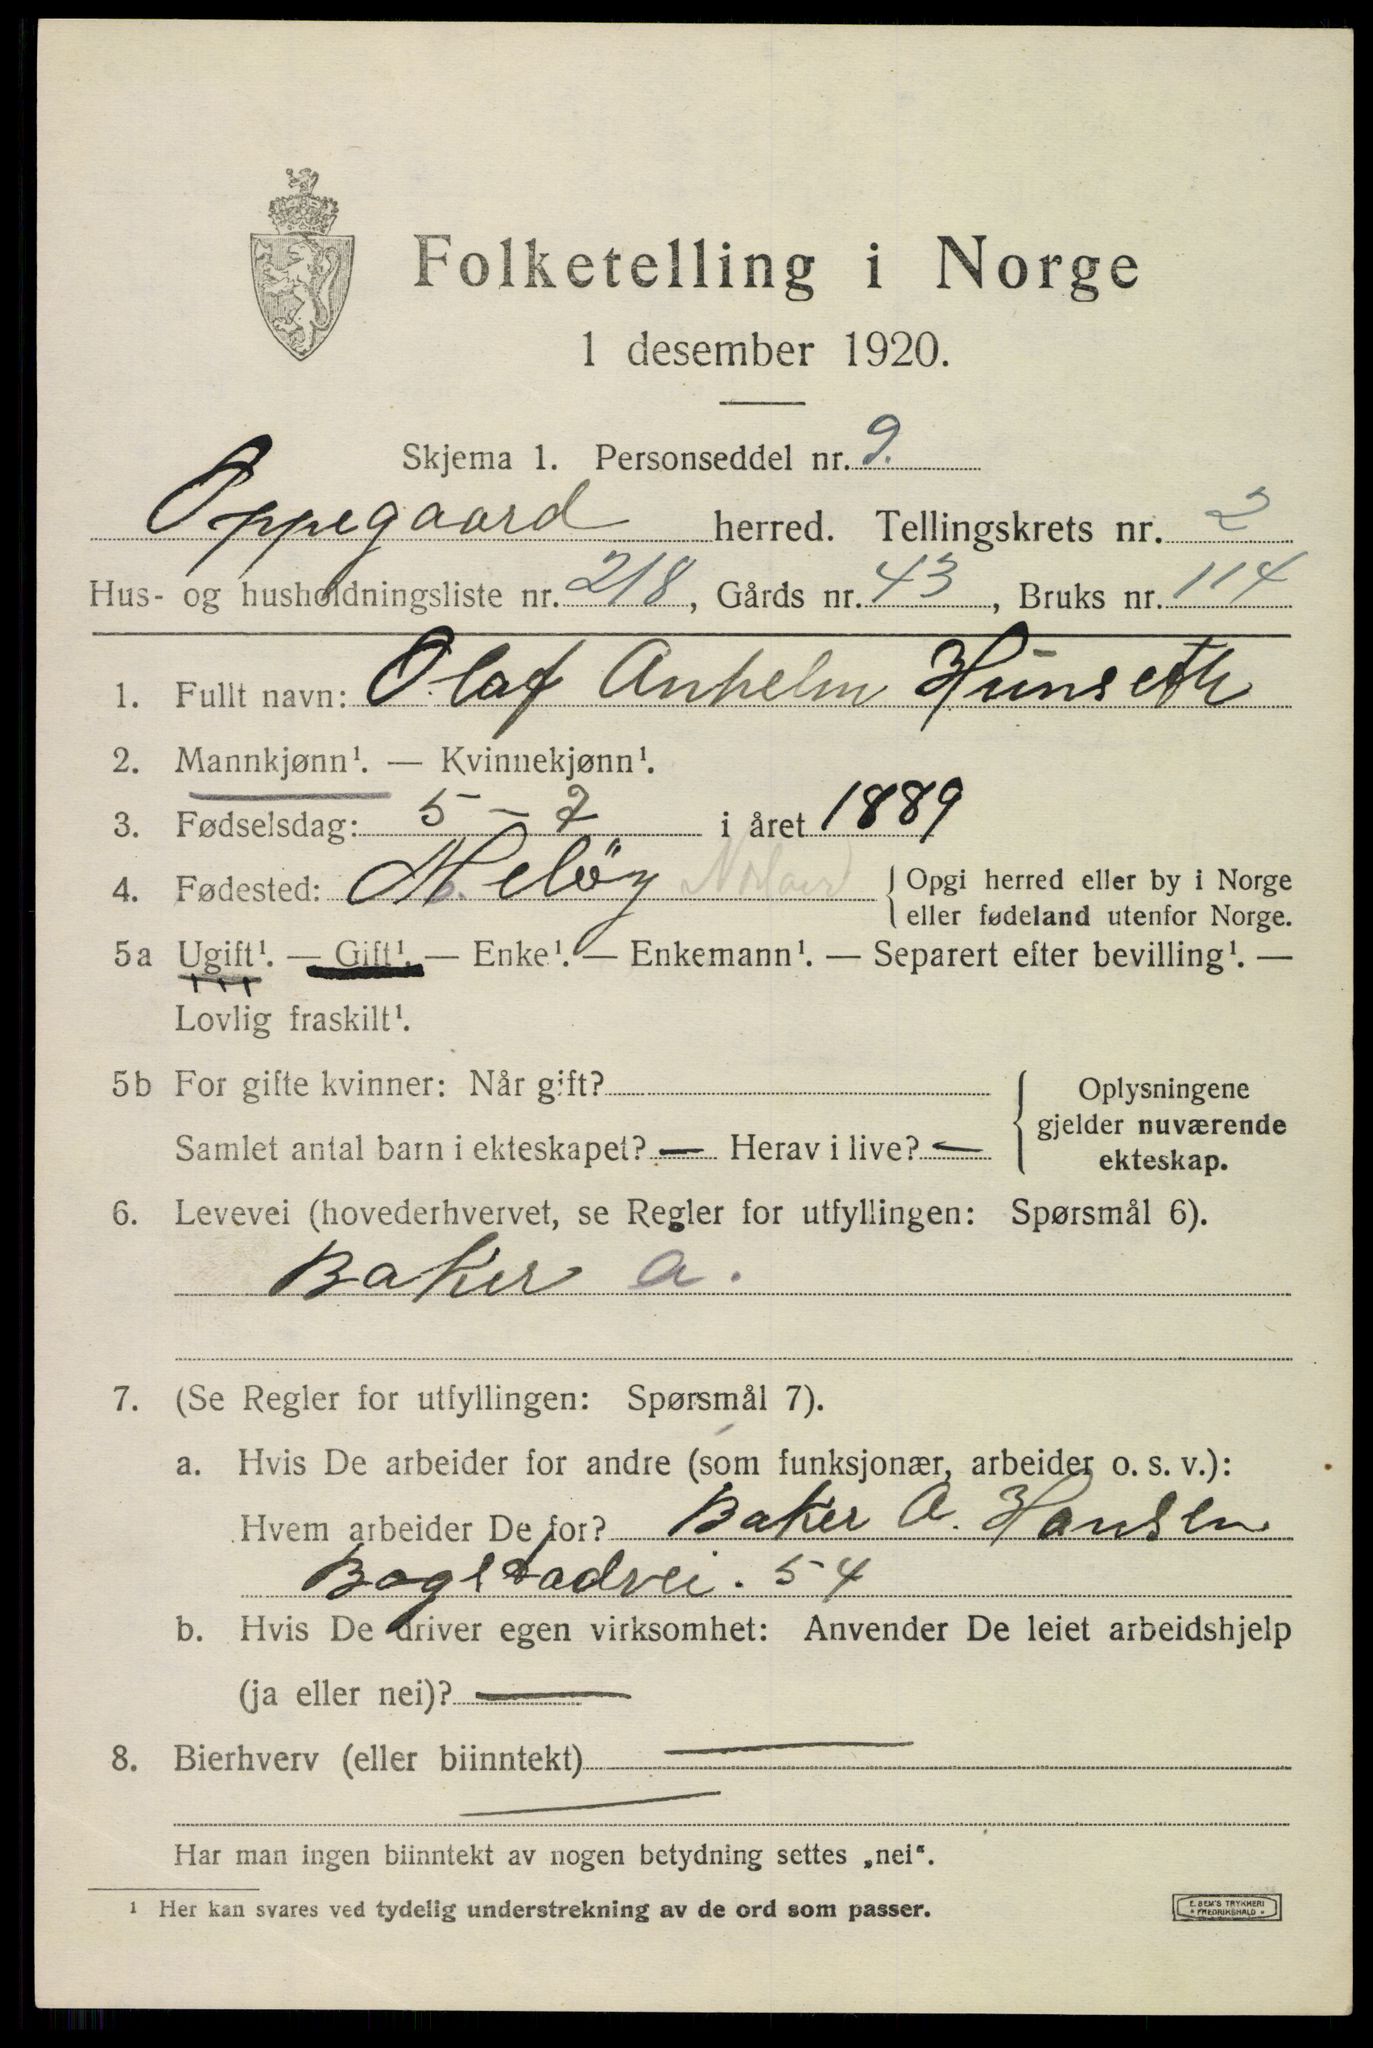 Folketelling i Norge
1 desember 1920.
Skjema 1. Personseddel nr. 9.
Oppegaard herred. Tellingskrets nr. 2
Hus- og husholdningsliste nr. 218, Gårds nr. 43, Bruks nr. 114
1. Fullt navn: Olaf Anhelm Hunseth
2. Mannkjønn¹. — Kvinnekjønn¹.
3. Fødselsdag: 5 - 7 i året 1889
4. Fødested: Meløy Norland
Opgi herred eller by i Norge
eller fødeland utenfor Norge.
5a Ugift¹. — Gift¹. — Enke¹. — Enkemann¹. — Separert efter bevilling¹. —
Lovlig fraskilt¹.
5b For gifte kvinner: Når gift?
Samlet antal barn i ekteskapet? — Herav i live? —
Oplysningene
gjelder nuværende
ekteskap.
6. Levevei (hovederhvervet, se Regler for utfyllingen: Spørsmål 6).
Baker a.
7. (Se Regler for utfyllingen: Spørsmål 7).
a. Hvis De arbeider for andre (som funksjonær, arbeider o. s. v.):
Hvem arbeider De for? Baker A. Hansen
Bogstadvei. 54
b. Hvis De driver egen virksomhet: Anvender De leiet arbeidshjelp
(ja eller nei)? —
8. Bierhverv (eller biinntekt) —
—
Har man ingen biinntekt av nogen betydning settes „nei“.
¹ Her kan svares ved tydelig understrekning av de ord som passer.
E. SEM'S TRYKKERI
* FREDRIKSHALD *